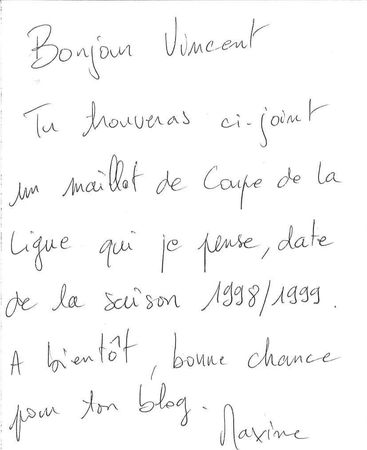 Bonjour Vincent
Tu trouveras ci-joint
un maillot de Coupe de la
Ligue qui je pense, date
de la saison 1998/1999.
A bientôt, bonne chance
pour ton blog.
Maxime